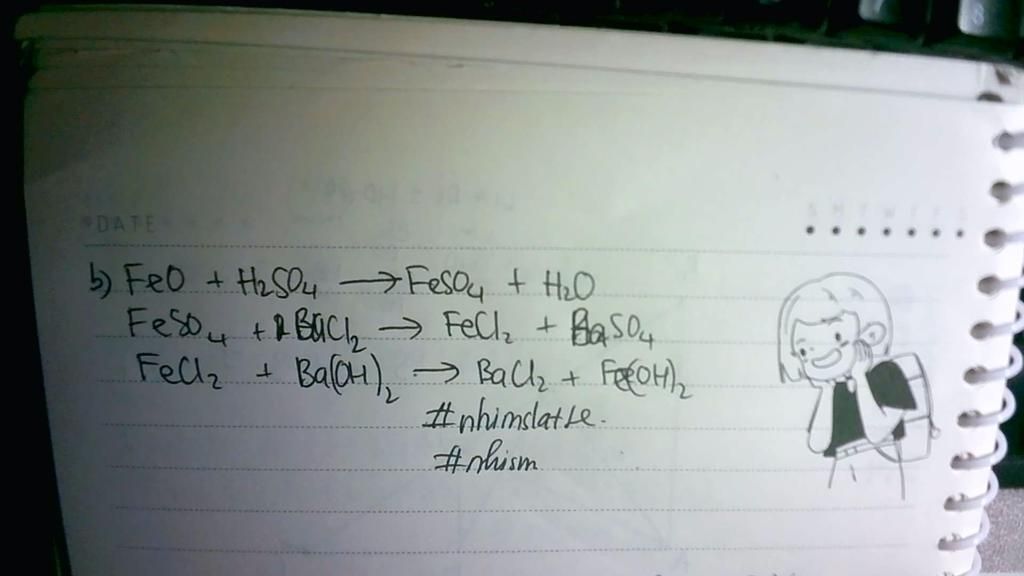 DATE
S M T W T F S
b) FeO + H₂SO₄ → FeSO₄ + H₂O
FeSO₄ + BaCl₂ → FeCl₂ + BaSO₄
FeCl₂ + Ba(OH)₂ → BaCl₂ + Fe(OH)₂
#nhimslatte.
#nhism